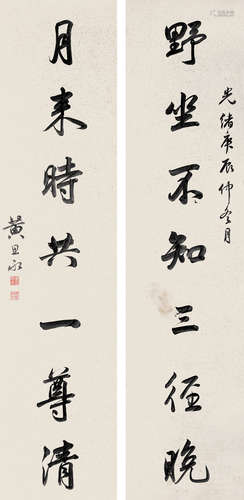 光緒庚辰仲冬月
野坐不知三徑晚
月來時共一尊清
黃思永